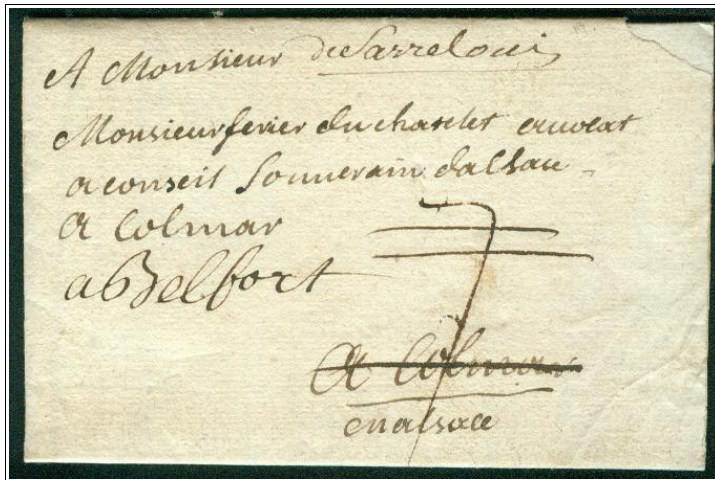 A Monsieur de Sarreloui
Monsieur ferier du chatelet avocat
a conseil Souverain dalsace
a Colmar
a Belfort
7
a Colmar
en alsace